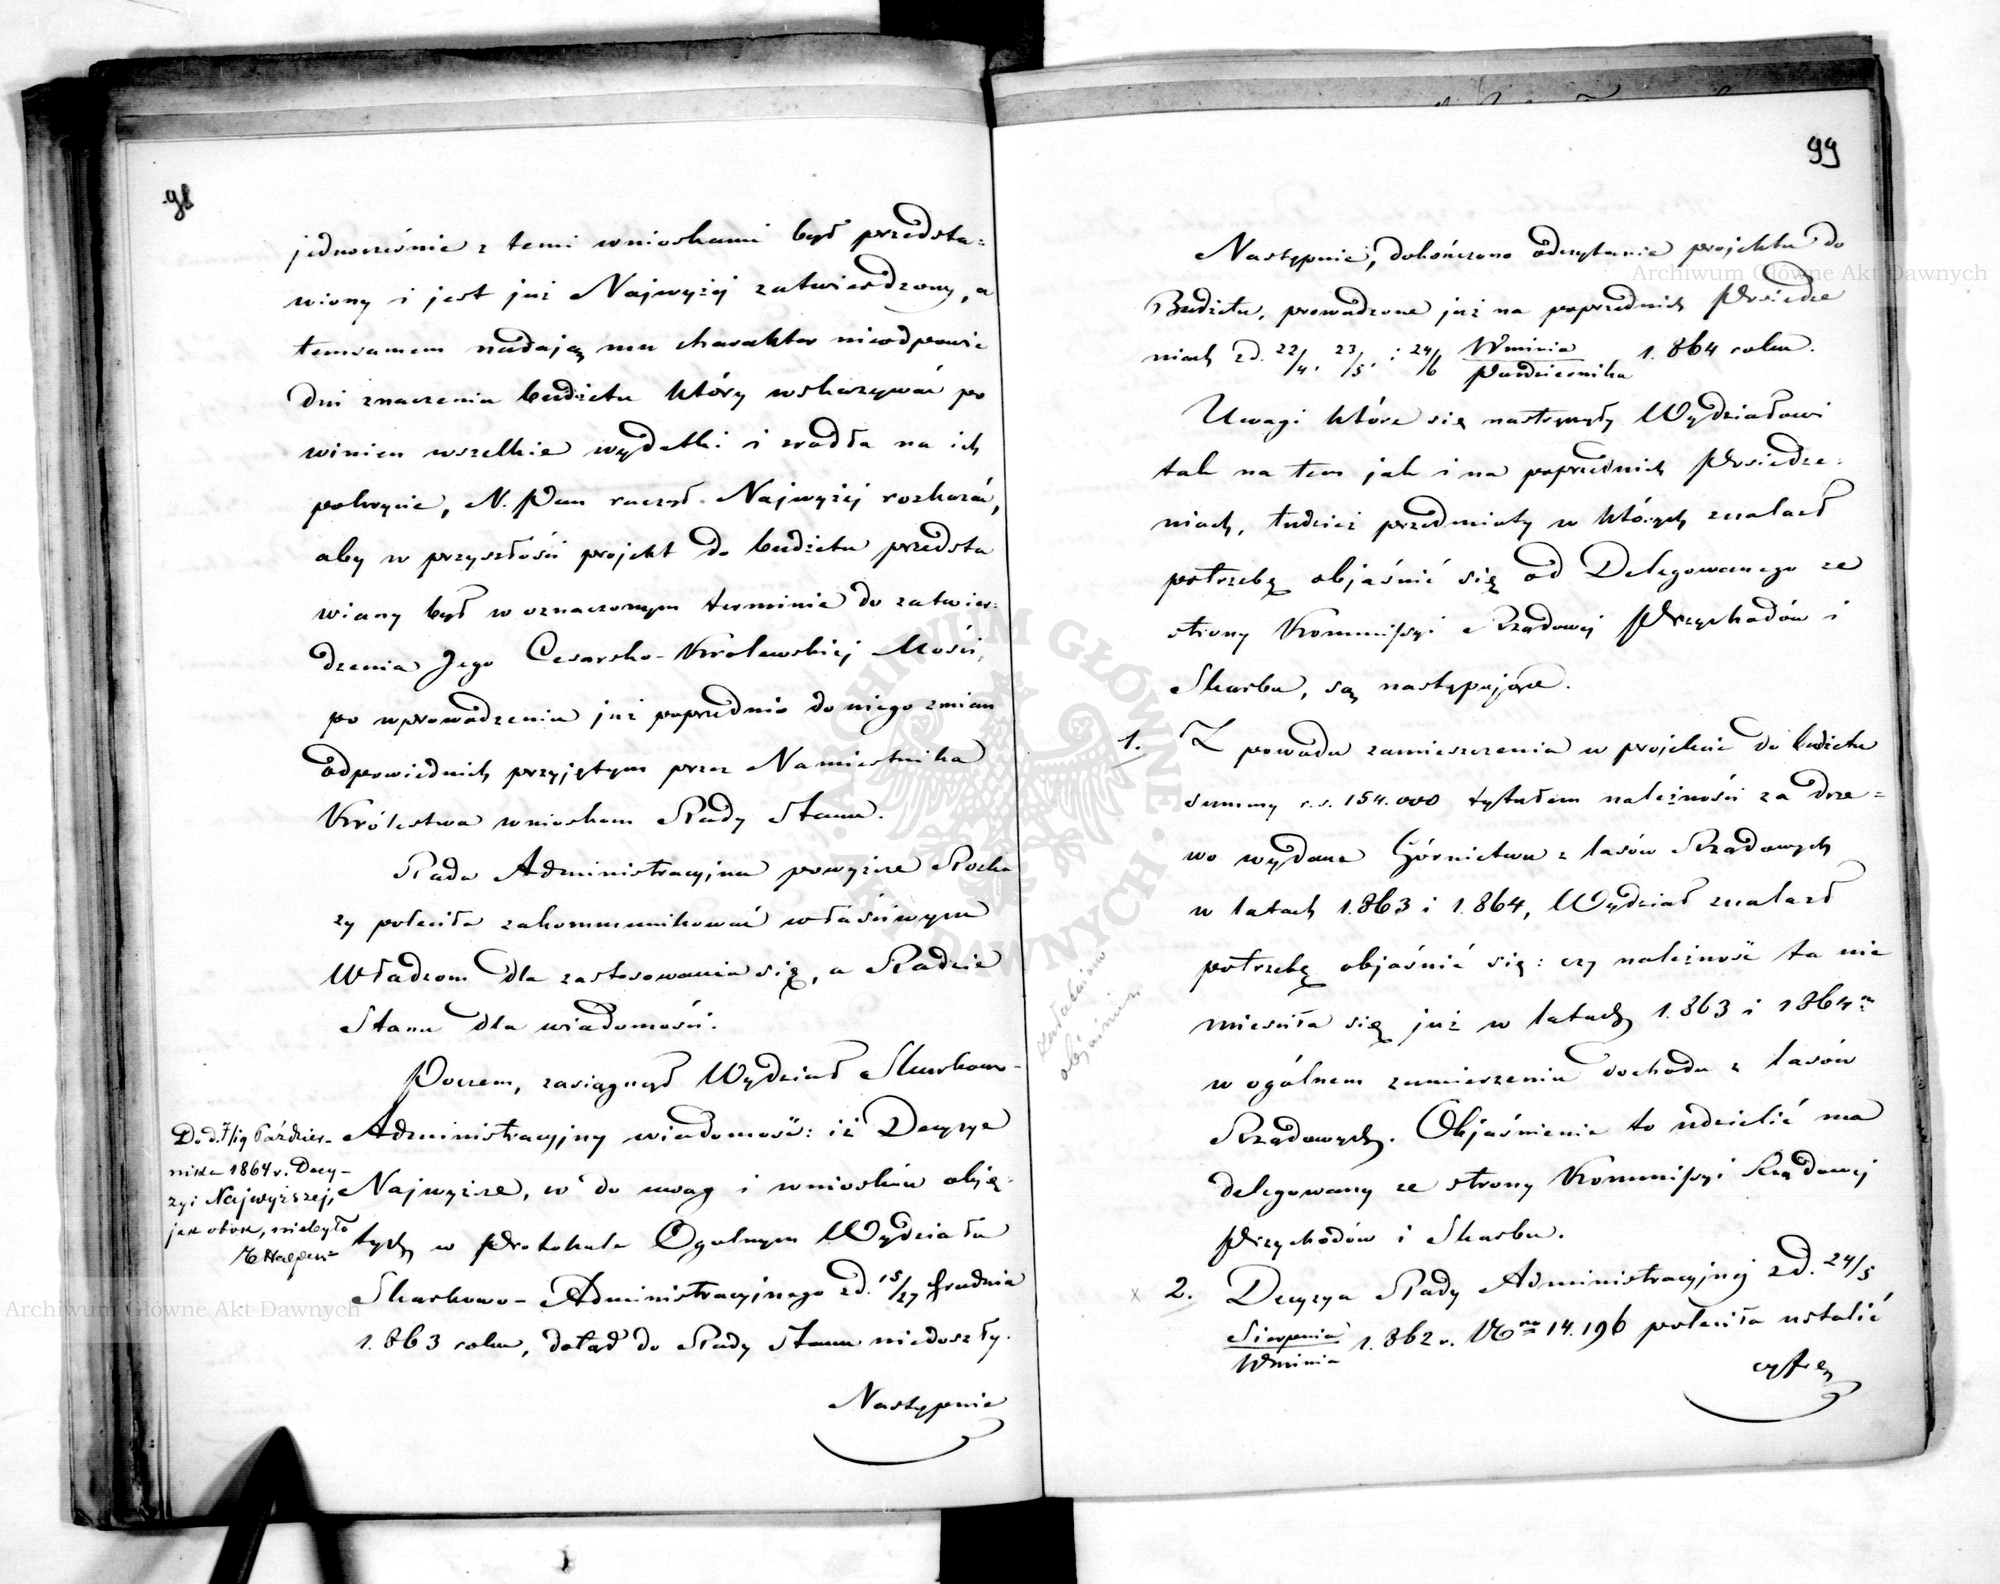 98
jednocześnie z temi wnioskami był przedsta=
wiony i jest już Najwyżej zatwierdzony, a
temsamem nadając mu charakter nieodpowie
dni znaczeniu budżetu który wskazywać po
winien wszelkie wydatki i źródła na ich
pokrycie, N. Pan raczył Najwyżej rozkazać,
aby w przyszłości projekt do budżetu przedsta
wiany był w oznaczonym terminie do zatwier=
dzenia Jego Cesarsko-Królewskiej Mości,
po wprowadzeniu już poprzednio do niego zmian
odpowiednich przyjętym przez Namiestnika
Królestwa wnioskom Rady Stanu.
Rada Administracyjna powyższe Rozka
zy poleciła zakommunikować właściwym
Władzom dla zastosowania się, a Radzie
Stanu dla wiadomości.
Poczem, zasiągnął Wydział Skarbowo-
Administracyjny wiadomość: iż Decyzye
Najwyższe, co do uwag i wniosków obję=
tych w Protokule Ogólnym Wydziału
Skarbowo-Administracyjnego z d. 15/27 Grudnia
1.863 roku, dotąd do Rady Stanu niedoszły.
Następnie
Do d. 7/19 Paździer-
nika 1864 r. Decy-
zyi Najwyższej,
jak obok, niebyło
99
Następnie, dokończono odczytanie projektu do
Budżetu, prowadzone już na poprzednich Posiedze
niach z d. 22/4, 23/5 i 24/6 Września/Października 1.864 roku.
Uwagi które się nastręczyły Wydziałowi
tak na tem jak i na poprzednich Posiedze=
niach, tudzież przedmioty w których znalazł
potrzebę objaśnić się od Delegowanego ze
strony Kommissyi Rządowej Przychodów i
Skarbu, są następujące.
1. Z powodu zamieszczenia w projekcie do budżetu
summy r.s. 154.000 tytułem należności za drze=
wo wydane Górnictwu z lasów Rządowych
w latach 1.863 i 1.864, Wydział znalazł
potrzebę objaśnić się: czy należność ta nie
mieściła się już w latach 1.863 i 1864m
w ogólnem zamieszczeniu dochodu z lasów
Rządowych. Objaśnienie to udzielić ma
delegowany ze strony Kommissyi Rządowej
Przychodów i Skarbu.
x 2. Decyzya Rady Administracyjnej z d. 24/5
Sierpnia/Września 1.862 r. Nro 14.196 poleciła ustalić
cyfrę
objaśnienie
Archiwum Główne Akt Dawnych
Archiwum Główne Akt Dawnych
ARCHIWUM GŁÓWNE AKT DAWNYCH